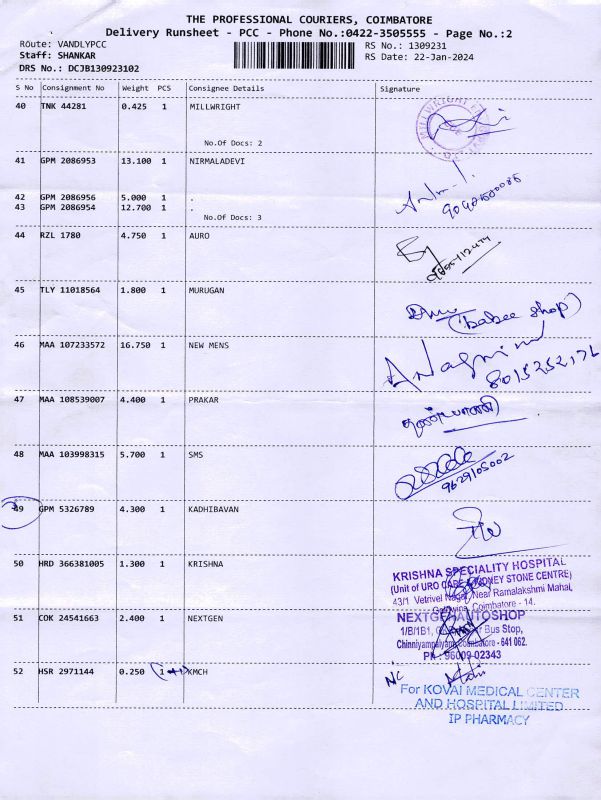 THE PROFESSIONAL COURIERS, COIMBATORE
Delivery Runsheet - PCC - Phone No.:0422-3505555 - Page No.:2
Route: VANDLYPCC
Staff: SHANKAR
DRS No.: DCJB130923102
RS No.: 1309231
RS Date: 22-Jan-2024
S No Consignment No Weight PCS Consignee Details Signature
40 TNK 44281 0.425 1 MILLWRIGHT
No.Of Docs: 2
41 GPM 2086953 13.100 1 NIRMALADEVI
42 GPM 2086956 5.000 1 .
43 GPM 2086954 12.700 1 .
No.Of Docs: 3
44 RZL 1780 4.750 1 AURO
45 TLY 11018564 1.800 1 MURUGAN
shop)
46 MAA 107233572 16.750 1 NEW MENS
8015252176
47 MAA 108539007 4.400 1 PRAKAR
48 MAA 103998315 5.700 1 SMS
9629105002
49 GPM 5326789 4.300 1 KADHIBAVAN
50 HRD 366381005 1.300 1 KRISHNA
KRISHNA SPECIALITY HOSPITAL
(Unit of URO CARE KIDNEY STONE CENTRE)
43/1 Vetrivel Nagar, Near Ramalakshmi Mahal,
Coimbatore - 14.
51 COK 24541663 2.400 1 NEXTGEN
NEXTGEN AUTOSHOP
1/B/1B1, Bus Stop,
Chinniyampalayam, Coimbatore - 641 062.
PH : 96009 02343
52 HSR 2971144 0.250 1 +1 KMCH
NC
For KOVAI MEDICAL CENTER
AND HOSPITAL LIMITED
IP PHARMACY